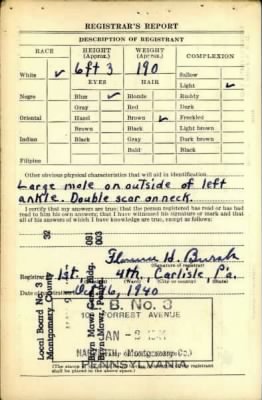 REGISTRAR'S REPORT
DESCRIPTION OF REGISTRANT
RACE HEIGHT (Approx.) WEIGHT (Approx.) COMPLEXION
6ft 3 190
White ✓ EYES HAIR Sallow
Light ✓
Negro Blue ✓ Blonde Ruddy
Gray Red Dark
Oriental Hazel Brown ✓ Freckled
Brown Black Light brown
Indian Black Gray Dark brown
Bald Black
Filipino
Other obvious physical characteristics that will aid in identification
Large mole on outside of left
ankle. Double scar on neck.
I certify that my answers are true; that the person registered has read or has had
read to him his own answers; that I have witnessed his signature or mark and that
all of his answers of which I have knowledge are true, except as follows:
32 091 003
(Signature of registrar)
Registrar 1st, 4th, Carlisle, Pa.
(Ward) (City or county) (State)
Date of Oct 16, 1940
Local Board No. 3
Montgomery County
Bryn Mawr Bldg.
Bryn Mawr
B. No. 3
FORREST AVENUE
Montgomery Co.
PENNSYLVANIA
shall be placed in the above space.)